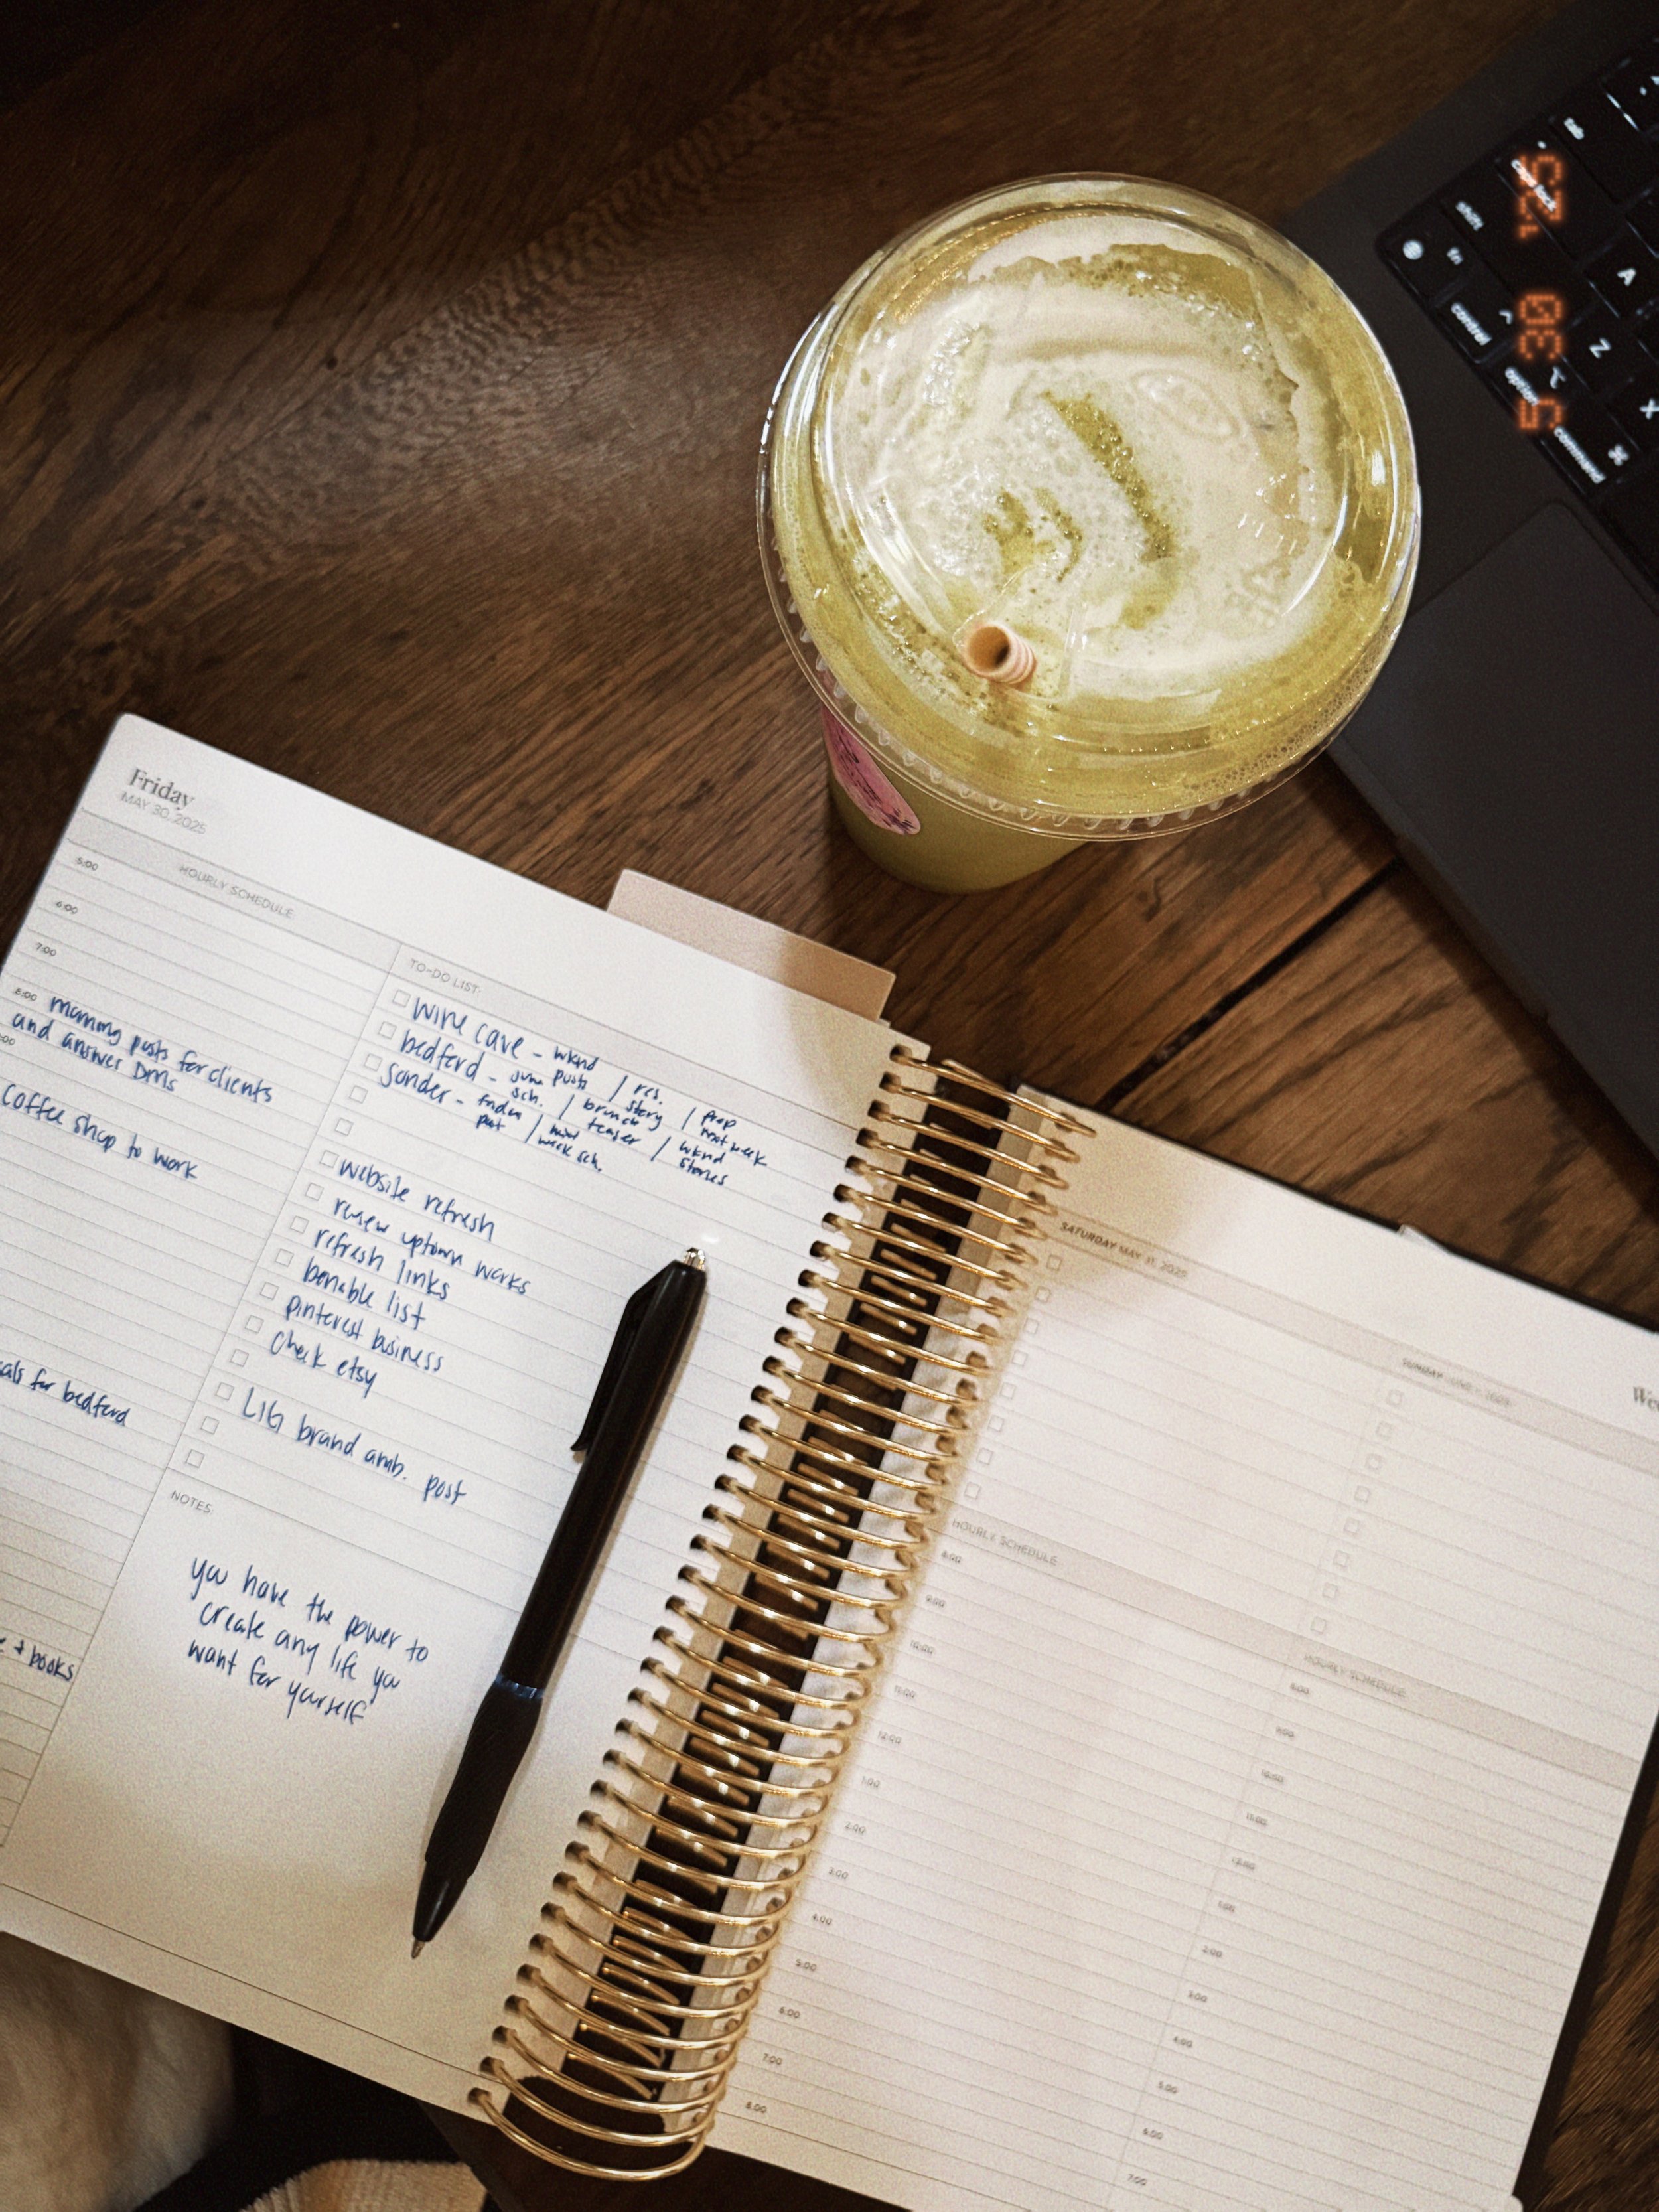 Friday
MAY 30, 2025
HOURLY SCHEDULE
5:00
6:00
7:00
8:00 morning posts for clients
and answer DMs
:00
Coffee shop to work
als for bedford
+ books
TO-DO LIST:
wine cave - wknd
bedford - june posts / res.
sch. / brunch story / prep next week
sonder - friday post / next week sch. / teaser / wknd stories
website refresh
renew uptown works
refresh links
benable list
pinterest business
check etsy
LIG brand amb. post
NOTES:
you have the power to
create any life you
want for yourself
SATURDAY MAY 31, 2025
HOURLY SCHEDULE
8:00
9:00
10:00
11:00
12:00
1:00
2:00
3:00
4:00
5:00
6:00
7:00
8:00
SUNDAY JUNE 1, 2025
HOURLY SCHEDULE
8:00
9:00
10:00
11:00
12:00
1:00
2:00
3:00
4:00
5:00
6:00
7:00
We
tab
caps lock
A
shift
Z
X
fn
control
option
command
5 30 '25